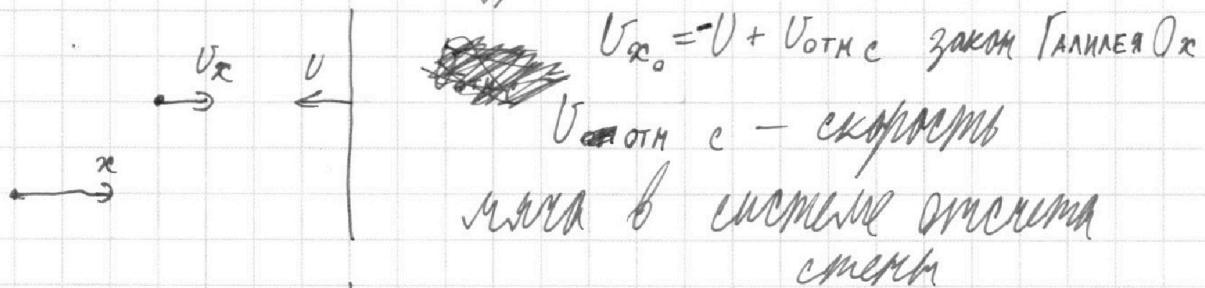 Uₓ₀ = -U + U отн с закон Галилея Ox
Uₓ U
U отн с – скорость
x
мяча в системе отсчета
стены